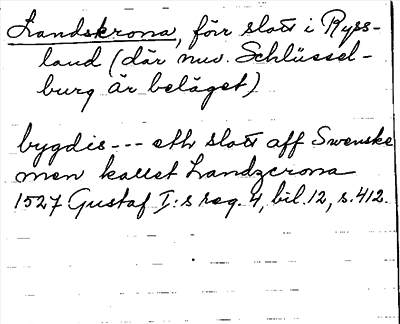 Landskrona, förr slott i Ryss-
land (där nuv. Schlüssel-
burg är beläget)
bygdis --- eth slott aff Swenske
men kallet Landzcrona
1527 Gustaf I:s reg. 4, bil. 12, s. 412.